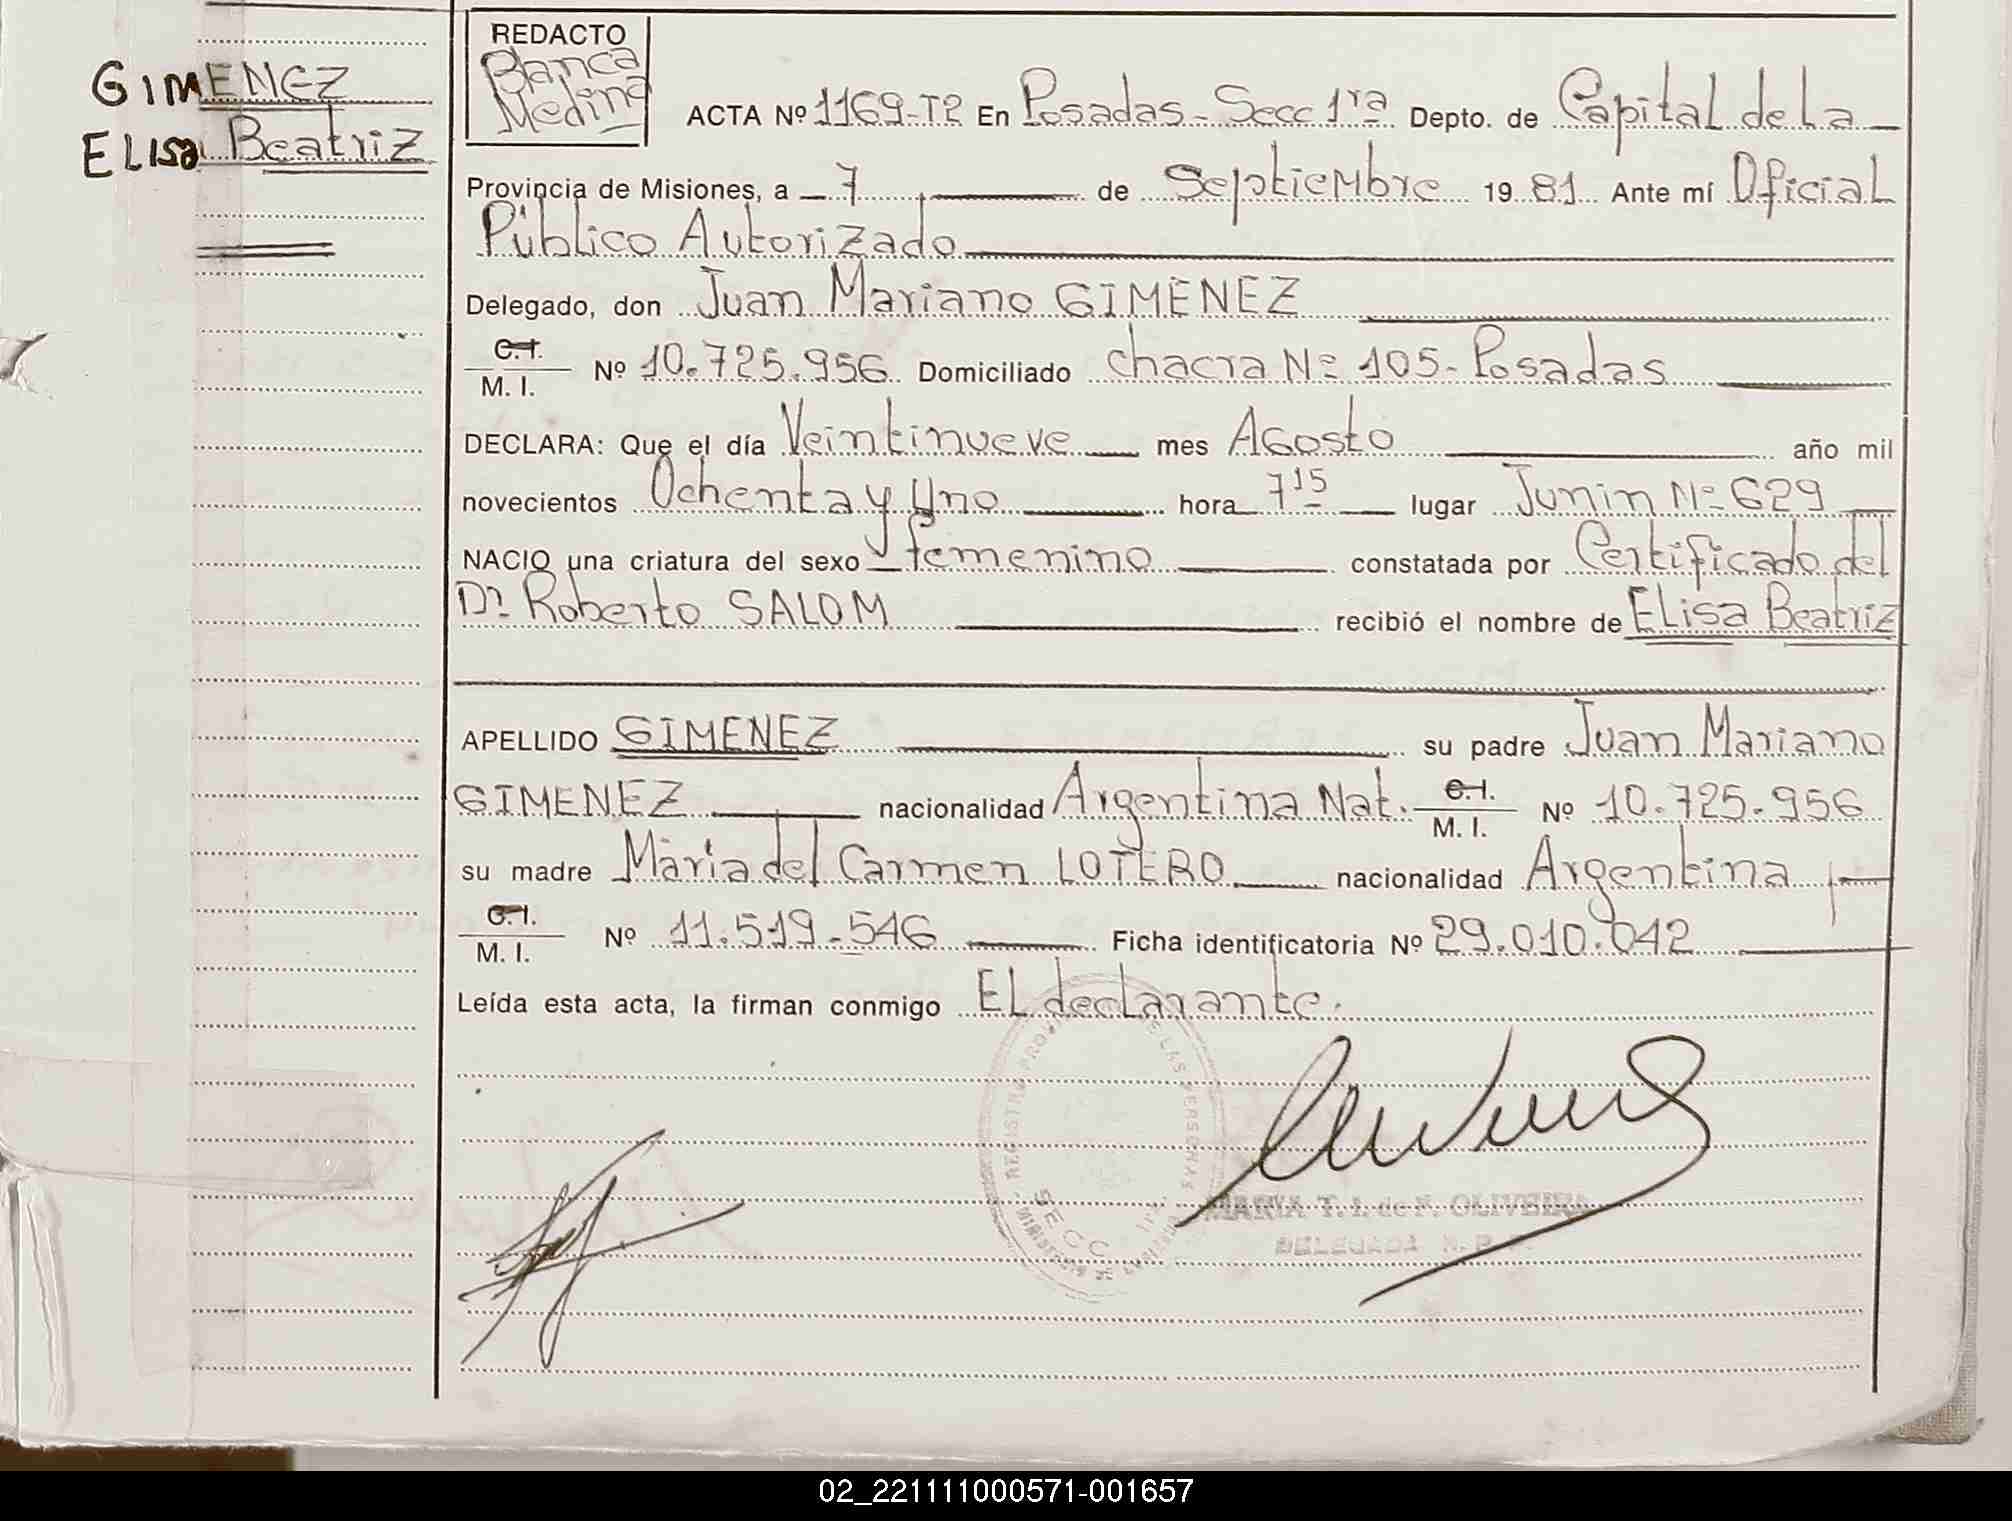 GIMENEZ
ELISA Beatriz
REDACTO
Blanca
Medina
ACTA Nº 1169-T2 En Posadas-Secc 1ra Depto. de Capital de La
Provincia de Misiones, a 7 de Septiembre 1981 Ante mí Oficial
Público Autorizado
Delegado, don Juan Mariano GIMENEZ
C.I.
M. I. Nº 10.725.956 Domiciliado chacra Nº 105-Posadas
DECLARA: Que el día Veintinueve mes Agosto año mil
novecientos Ochenta y Uno hora 7 15 lugar Junin Nº 629
NACIO una criatura del sexo femenino constatada por Certificado del
Dr. Roberto SALOM recibió el nombre de ELisa Beatriz
APELLIDO GIMENEZ su padre Juan Mariano
GIMENEZ nacionalidad Argentina Nat. C.I.
M. I. Nº 10.725.956
su madre Maria del Carmen LOTERO nacionalidad Argentina
C.I.
M. I. Nº 11.519.546 Ficha identificatoria Nº 29.010.042
Leída esta acta, la firman conmigo EL declarante.
REGISTRO DE LAS PERSONAS
SECC 1ra
MARIA T. I. de F. OLIVEIRA
DELEGADA R. P.
02_221111000571-001657